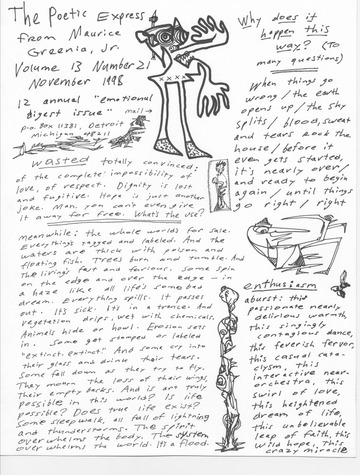 The Poetic Express
from Maurice
Greenia, Jr.
Volume 13 Number 21
November 1998
12 annual "emotional
digest issue" mail→
p.o. Box 11381, Detroit
Michigan 48211
wasted totally convinced:
of the complete impossibility of
love, of respect. Dignity is lost
and fugitive. Hope is just another
joke. Man, you can't even give
it away for free. What's the use?
Meanwhile: the whole worlds for sale.
everythings tagged and labeled. And the
waters are thick with poison and
floating fish. Trees burn and tumble. And
the living's fast and furious. Some spin
on the edge and over the edge — in
a haze like all life's some bad
dream. Everything spills. It passes
out. It's sick. It's in a trance. And
vegetation drips, wet with chemicals.
Animals hide or howl. Erosion sets
in. Some get stamped or labeled
"extinct, extinct." And some cry into
their glass and drink their tears.
Some fall down as they try to fly.
They mourn the loss of their wings,
their empty bodies. And is any truly
possible in this world? Is life
possible? Does true life exist?
Some sleepwalk, all full of lightning
and thunderstorms. The spirit
overwhelms the body. The system
overwhelms the world. It's a flood.
Why does it
happen this
way? (To
many questions)
When things go
wrong / the earth
opens up / the sky
splits / blood, sweat
and tears rock the
house / before it
even gets started,
it's nearly over /
and ready to begin
again / until things
go right / right
enthusiasm
aburst: this
passionate nearly
delirious warmth,
this singing
contagious dance,
this feverish fervor,
this casual cata-
clysm, this
interactive near-
orchestra, this
swirl of love,
this heightened
dream of life,
this unbelievable
leap of faith, this
wild hope, This
crazy miracle